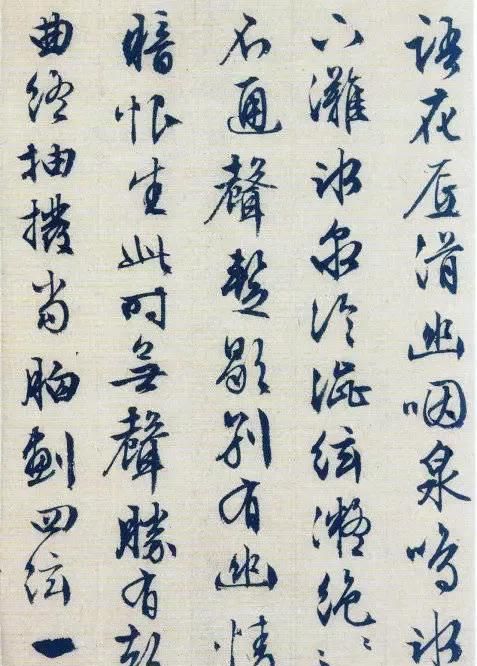 語花底滑幽咽泉鳴冰
下灘冰泉冷澀絃凝絕〻
不通聲暫歇別有幽情
暗恨生此时無聲勝有
曲終抽撥當胸劃四絃一